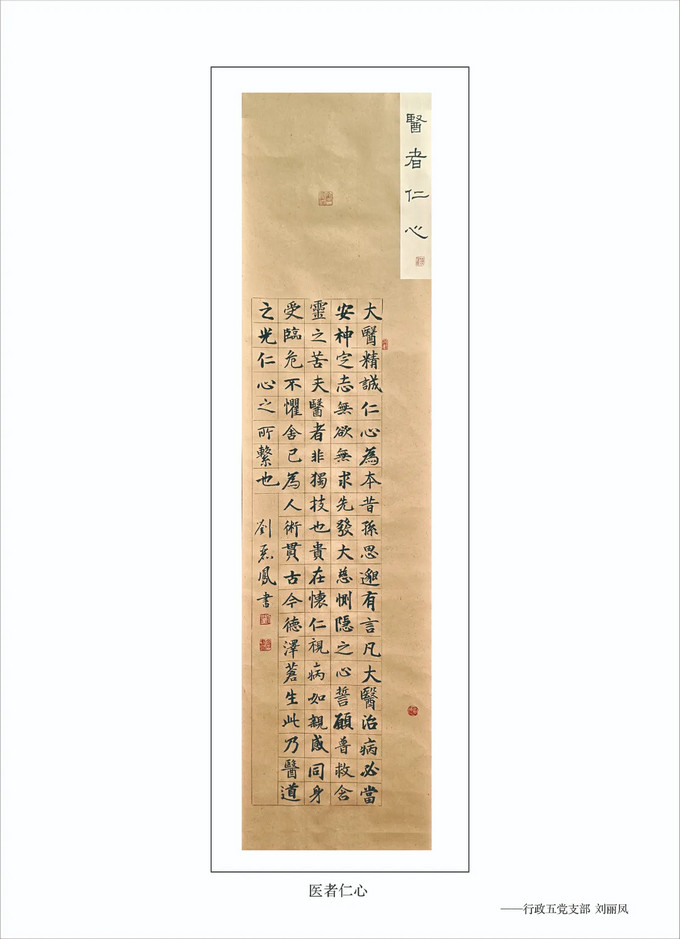 醫者仁心
大醫精誠仁心為本昔孫思邈有言凡大醫治病必當
安神定志無欲無求先發大慈惻隱之心誓願普救含
靈之苦夫醫者非獨技也貴在懷仁視病如親感同身
受臨危不懼舍己為人術貫古今德澤蒼生此乃醫道
之光仁心之所繫也
劉麗鳳書
医者仁心
——行政五党支部 刘丽凤